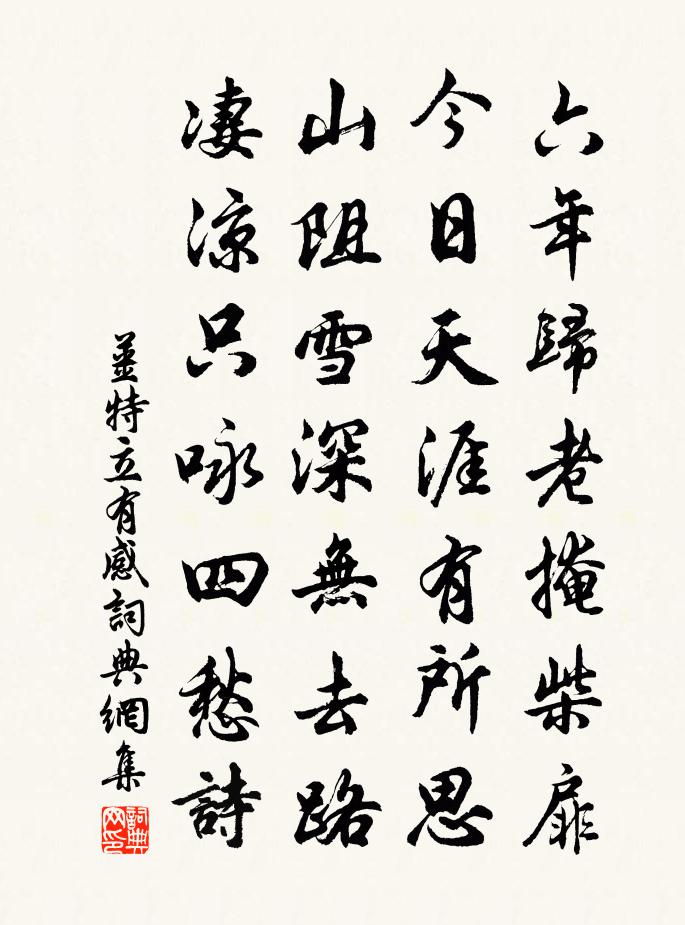 六年歸老掩柴扉
今日天涯有所思
山阻雪深無去路
凄涼只咏四愁詩
薑特立有感詞典網集
詞典网印